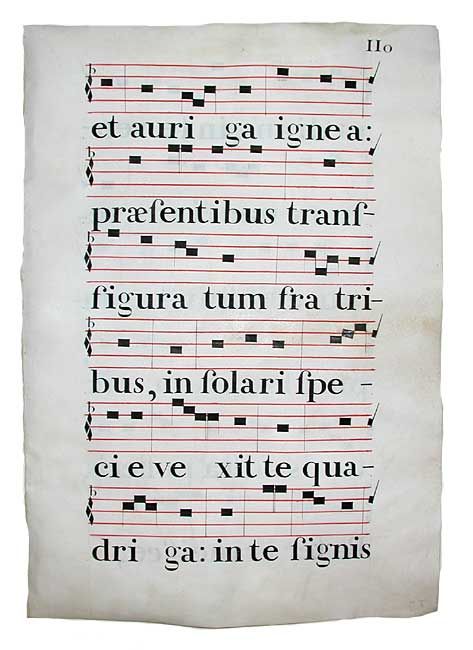 110
et auri ga ignea:
præſentibus tranſ-
figura tum fra tri-
bus, in ſolari ſpe -
ci e ve xit te qua-
dri ga: in te ſignis